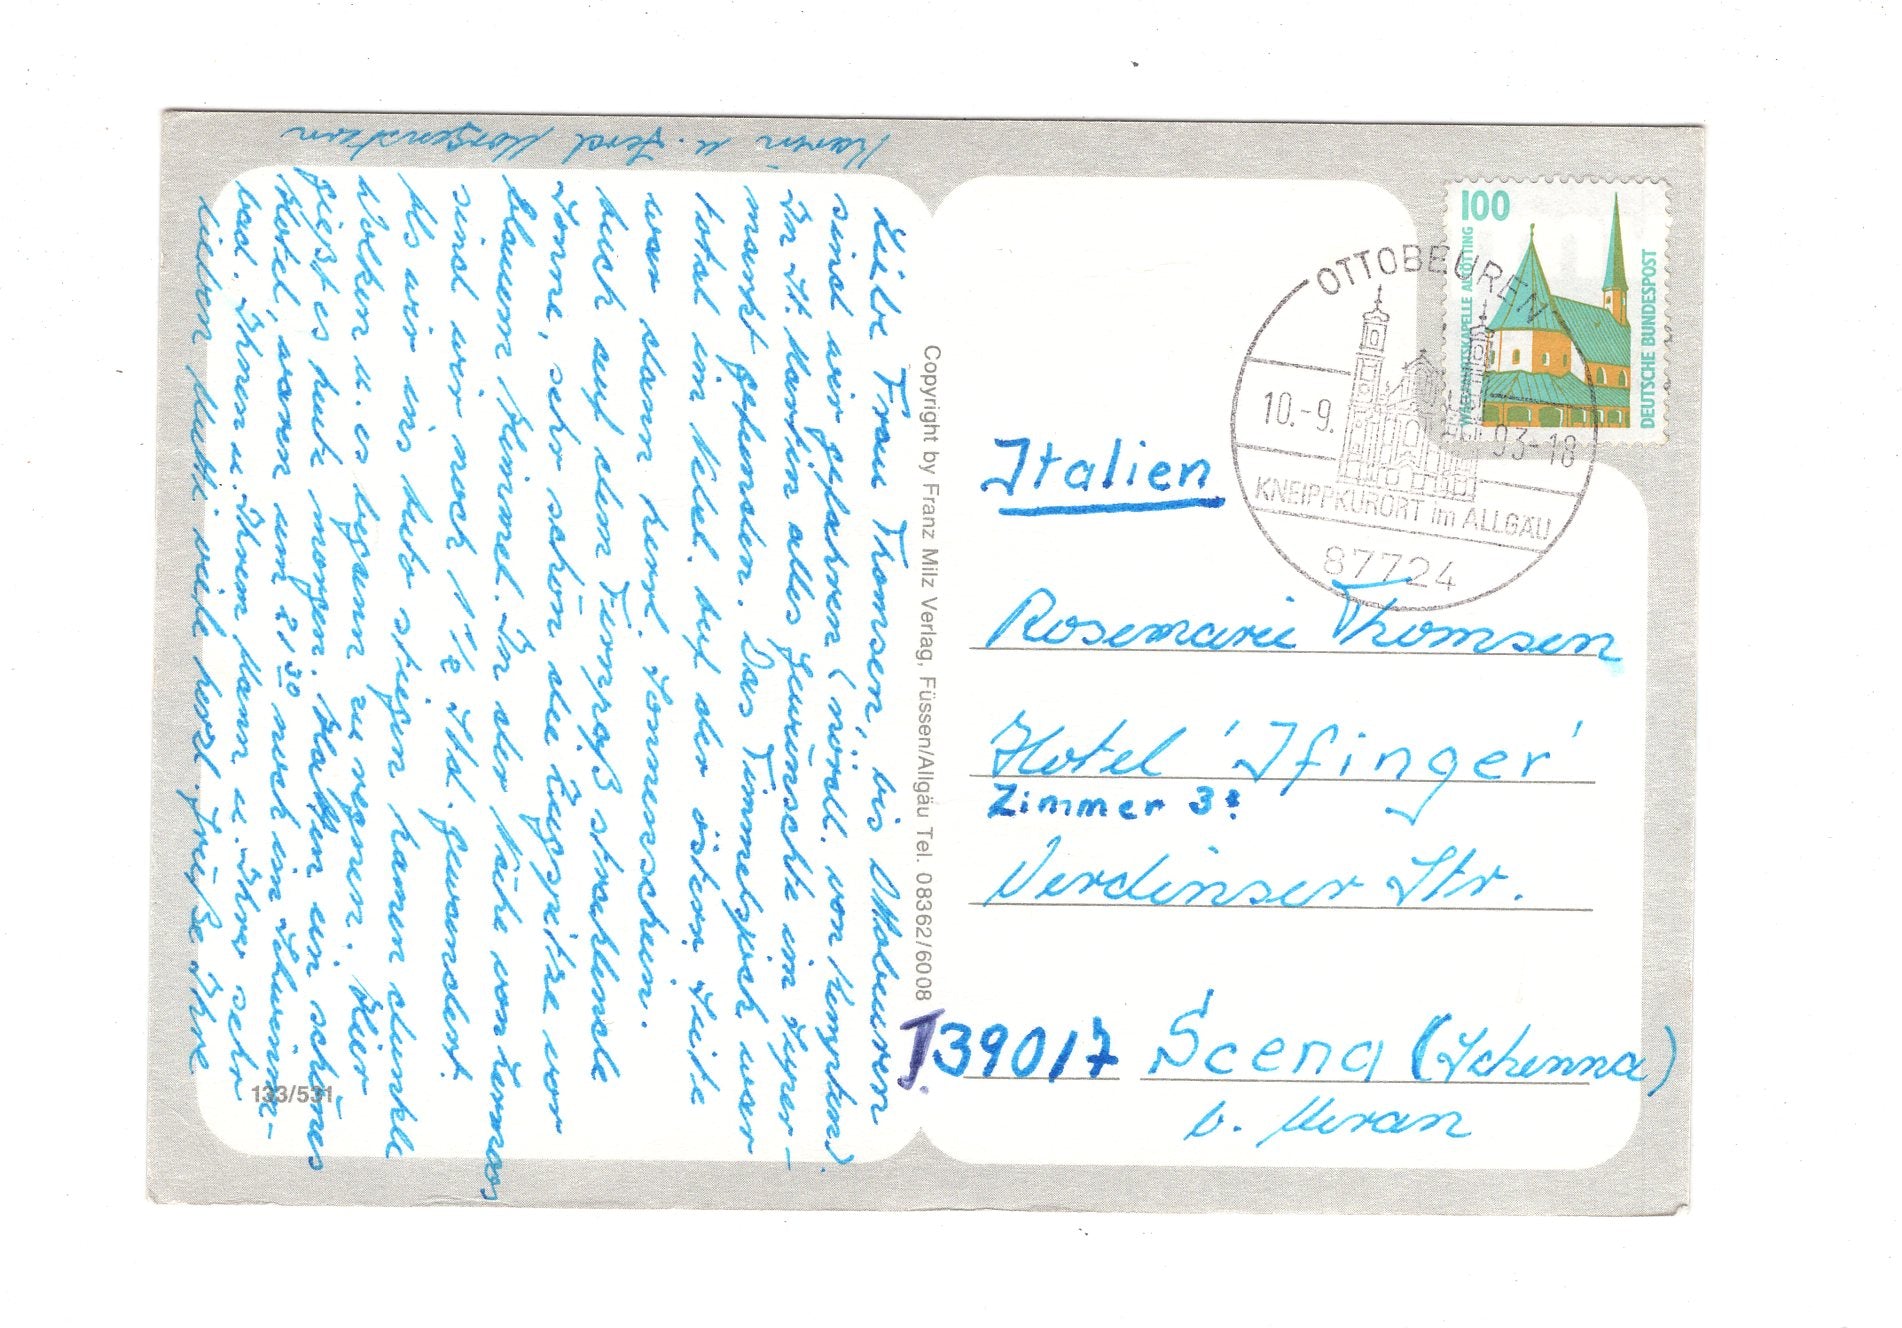 Liebe Frau Thomsen, bis Ottobeuren
sind wir gefahren (nördl. von Kempten).
In St. Martin alles Gewünschte im Super-
markt gefunden. Das Timmelsjoch war
total im Nebel. Auf der österr. Seite
war dann herrl. Sonnenschein.
Auch auf dem Fernpaß strahlende
Sonne, sehr schön die Zugspitze vor
blauem Himmel. In der Nähe von Lermoos
sind wir noch 1 1/2 Std. gewandert.
Als wir ins Auto stiegen kamen dunkle
Wolken u. es begann zu regnen. Hier
gießt es heute morgen. Hatten ein schönes
Hotel, waren um 21 30 noch im Schwimm-
bad. Ihnen u. Ihrem Mann u. Ihrer sehr
lieben Mutti viele herzl. Grüße Ihre
Karin u. Gerd Morgenstern
133/531
Copyright by Franz Milz Verlag, Füssen/Allgäu Tel. 08362/6008
100
WALLFAHRTSKAPELLE ALTÖTTING
DEUTSCHE BUNDESPOST
OTTOBEUREN
10.-9. 93-18
KNEIPPKURORT im ALLGÄU
87724
Italien
Rosemarie Thomsen
Hotel 'Ifinger'
Zimmer
Verdinser Str.
I 39017 Scena (Schenna)
b. Meran